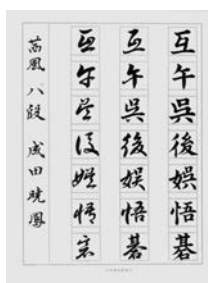 互午呉後娯悟碁
互午呉後娯悟碁
互午呉後娯悟碁
八段 成田 暁鳳